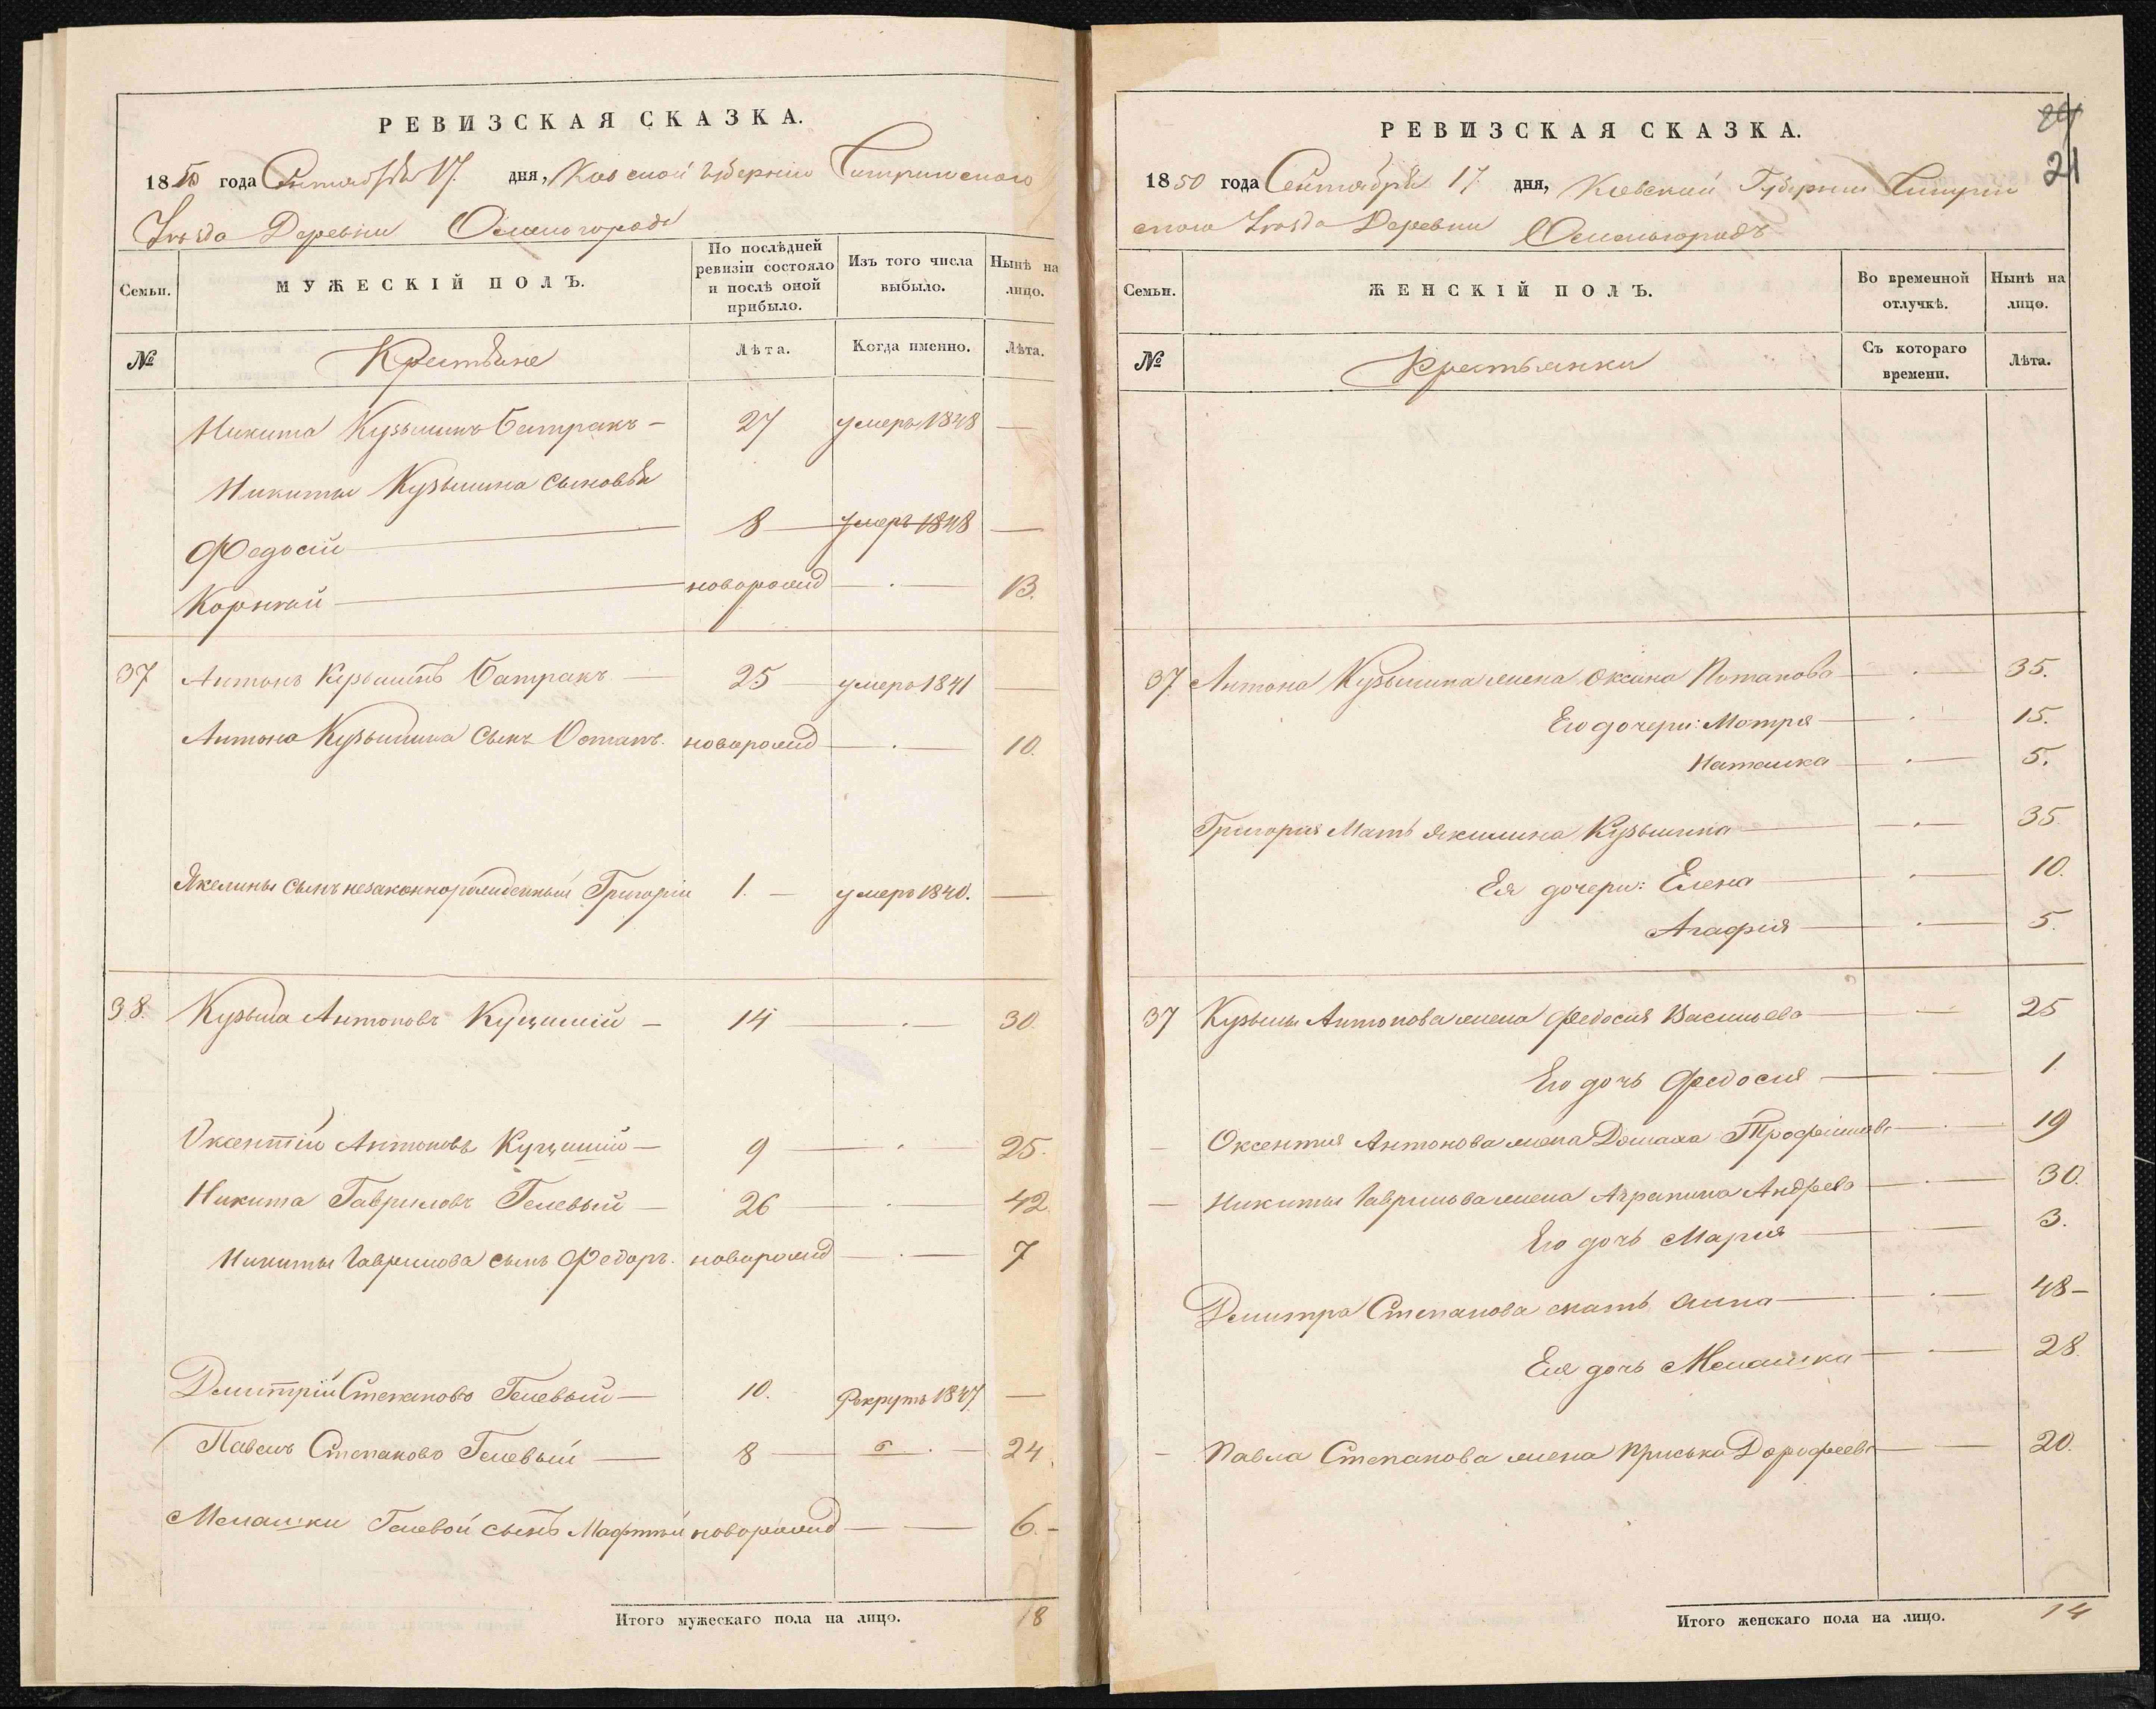 РЕВИЗСКАЯ СКАЗКА.
1850 года Сентября 17. дня, Киевской Губернии Чигринского
Уезда Деревни
Семьи. МУЖЕСКІЙ ПОЛЪ. По послѣдней ревизіи состояло и послѣ оной прибыло. Изъ того числа выбыло. Нынѣ на лицо.
№ Крестьяне Лѣта. Когда именно. Лѣта.
Никита Кузьминъ Батракъ — 27 умеръ 1848 —
Никиты Кузьмина сыновья
Федосій — 8 — умеръ 1848 —
Корнѣй — новорожд — . — 13.
37 Антонъ Кузьминъ Батракъ — 25 — умеръ 1841 —
Антона Кузьмина сынъ Остапъ. новорожд — . — 10.
Якелины сынъ незаконнорожденный Григорій 1. — умеръ 1840. —
38. Кузьма Антоновъ — 14 — . — 30.
Оксентій Антоновъ — 9 — . — 25.
Никита Гавриловъ Гелевый — 26 — . — 42
Никиты Гаврилова сынъ Федоръ. новорожд — . — 7
Дмитрій Степановъ Гелевый — 10. Рекрутъ 1847 —
Павелъ Степановъ Гелевый — 8 — . — 24.
Мелашки Гелевой сынъ новорожд — — 6. -
Итого мужескаго пола на лицо. 8
РЕВИЗСКАЯ СКАЗКА.
21
1850 года Сентября 17 дня, Киевской Губернии Чигрин
ского Уезда Деревни
Семьи. ЖЕНСКІЙ ПОЛЪ. Во временной отлучкѣ. Нынѣ на лицо.
№ Крестьянки Съ котораго времени. Лѣта.
37 Антона Кузьмина жена Оксана Потапова — . — 35.
Его дочери: Мотря — . — 15.
Наталка — . — 5.
Григорія Мать Якилина Кузьмина — . — 35.
Ея дочери: Елена — . — 10.
Агафія — . — 5.
37 Кузьмы Антонова жена Федосія Васильева — — 25
Его дочь Федосія — . — 1
— Оксентія Антонова жена Домаха Трофимова — . — 19
— Никиты Гаврилова жена Агрипина Андреева — . — 30.
Его дочь Марія — . — 3.
Дмитра Степанова мать Анна — . — 48 —
Ея дочь Мелашка — . — 28.
— Павла Степанова жена Приська Дорофеева — — 20.
Итого женскаго пола на лицо. 14